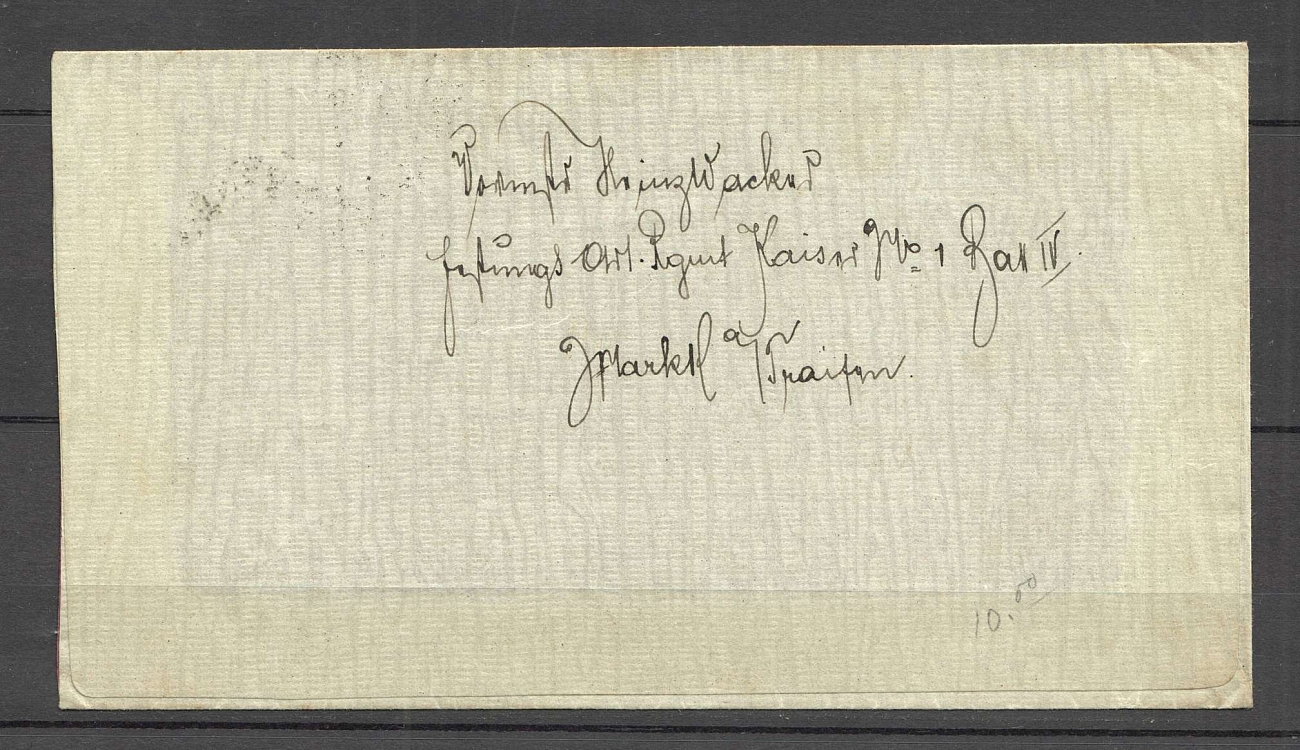 Vormstr Heinz Wacker
Festungs Art. Rgmt Kaiser No 1 Bat IV.
Marktl a/Traisen.
10.00